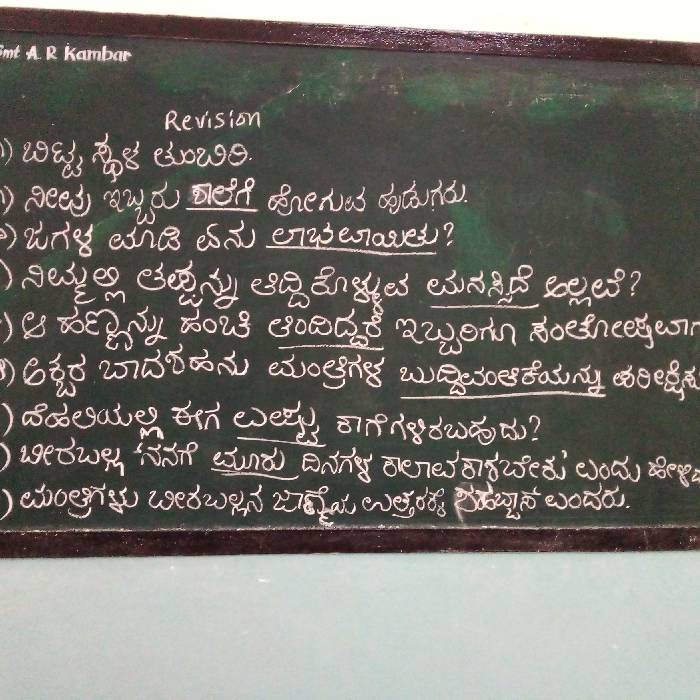 Smt A. R Kambar
Revision
೧) ಬಿಟ್ಟ ಸ್ಥಳ ತುಂಬಿರಿ.
೧) ನೀವು ಇಬ್ಬರು ಶಾಲೆಗೆ ಹೋಗುವ ಹುಡುಗರು.
೨) ಜಗಳ ಮಾಡಿ ಏನು ಲಾಭವಾಯಿತು?
) ನಿಮ್ಮಲ್ಲಿ ತಪ್ಪನ್ನು ತಿದ್ದಿಕೊಳ್ಳುವ ಮನಸ್ಸಿದೆ ಅಲ್ಲವೆ?
) ಆ ಹಣ್ಣನ್ನು ಹಂಚಿ ತಿಂದಿದ್ದರೆ ಇಬ್ಬರಿಗೂ ಸಂತೋಷವಾಗ
) ಅಕ್ಬರ ಬಾದಶಹನು ಮಂತ್ರಿಗಳ ಬುದ್ಧಿವಂತಿಕೆಯನ್ನು ಪರೀಕ್ಷಿಸ
) ದೆಹಲಿಯಲ್ಲಿ ಈಗ ಎಷ್ಟು ಕಾಗೆಗಳಿರಬಹುದು?
) ಬೀರಬಲ್ಲ 'ನನಗೆ ಮೂರು ದಿನಗಳ ಕಾಲಾವಕಾಶಬೇಕು' ಎಂದು ಹೇಳಿದ
) ಮಂತ್ರಿಗಳು ಬೀರಬಲ್ಲನ ಜಾಣ್ಮೆಯ ಉತ್ತರಕ್ಕೆ ಶಹಬ್ಬಾಸ ಎಂದರು.